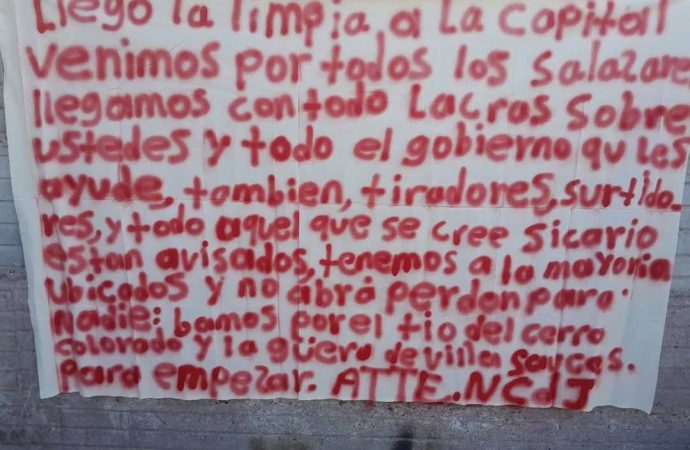 Llego la limpia a La Capital
venimos por todos los salazare
llegamos con todo Lacras sobre
ustedes y todo el gobierno qu les
ayude, tambien, tiradores, surtido-
res, y todo aquel que se cree sicario
estan avisados, tenemos a la mayoria
ubicados y no abrá perdon para
nadie: bamos por el tio del cerro
colorado y la güera de villa sauces.
Para empezar. ATTE. NCdJ